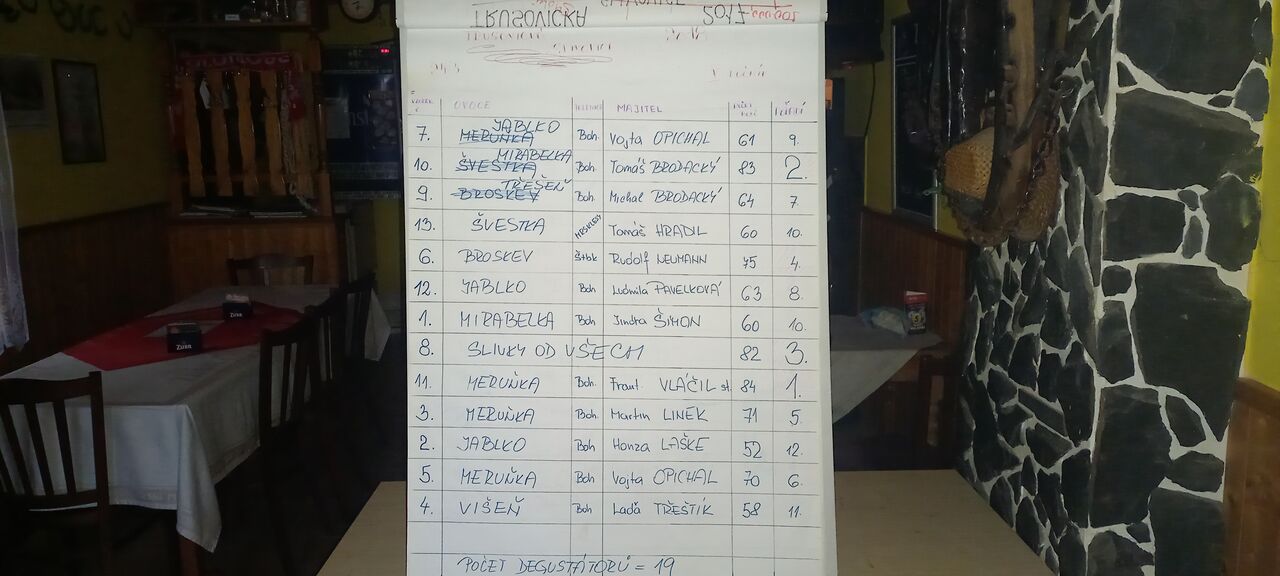 TRUSOVICKÁ 2017
OVOCE MAJITEL
7. MERUŇKA JABLKO Boh. Vojta OPICHAL 61 9.
10. ŠVESTKA MIRABELKA Boh Tomáš BRODACKÝ 83 2.
9. BROSKEV TŘEŠEŇ Boh. Michal BRODACKÝ 64 7.
13. ŠVESTKA Tomáš HRADIL 60 10.
6. BROSKEV Štbk Rudolf NEUMANN 75 4.
12. JABLKO Boh Ludmila PAVELKOVÁ 63 8.
1. MIRABELKA Boh Jindra ŠIMON 60 10.
8. SLIVKY OD VŠECH 82 3.
11. MERUŇKA Boh. Frant. VLÁČIL st. 84 1.
3. MERUŇKA Boh. Martin LINEK 71 5.
2. JABLKO Boh Honza LAŠKE 52 12.
5. MERUŇKA Boh Vojta OPICHAL 70 6.
4. VIŠEŇ Boh Laďa TŘEŠTÍK 58 11.
POČET DEGUSTÁTORŮ = 19